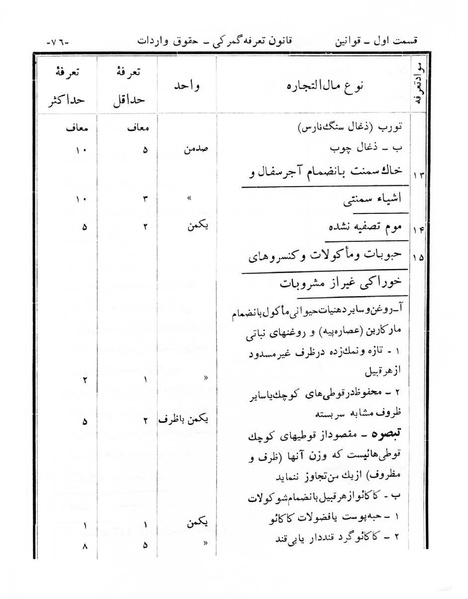 قسمت اول ــ قوانین قانون تعرفه گمرکی ــ حقوق واردات -۷۶-
موادتعرفه نوع مال‌التجاره واحد تعرفهٔ حداقل تعرفهٔ حداکثر
تورب (ذغال سنگ نارس) معاف معاف
ب ــ ذغال چوب صدمن ۵ ۱۰
۱۳ خاك سمنت بانضمام آجرسفال و
اشیاء سمنتی » ۳ ۱۰
۱۴ موم تصفیه نشده یکمن ۲ ۵
۱۵ حبوبات ومأکولات وکنسروهای
خوراکی غیراز مشروبات
آ‌ــ روغن وسایردهنیات حیوانی مأکول بانضمام
مارگارین (عصاره‌پیه) و روغنهای نباتی
۱ - تازه ونمك‌زده درظرف غیرمسدود
ازهرقبیل » ۱ ۲
۲ - محفوظ درقوطی‌های کوچك یاسایر
ظروف مشابه سربسته یکمن باظرف ۲ ۵
تبصره ــ مقصوداز قوطیهای کوچك
قوطی‌هائیست که وزن آنها (ظرف و
مظروف) ازیك من تجاوز ننماید
ب ــ کاکائو ازهرقبیل بانضمام شوکولات
۱ - حبه‌پوست یافضولات کاکائو یکمن ۱ ۱
۲ - کاکائو گرد قنددار یابی‌قند » ۵ ۸